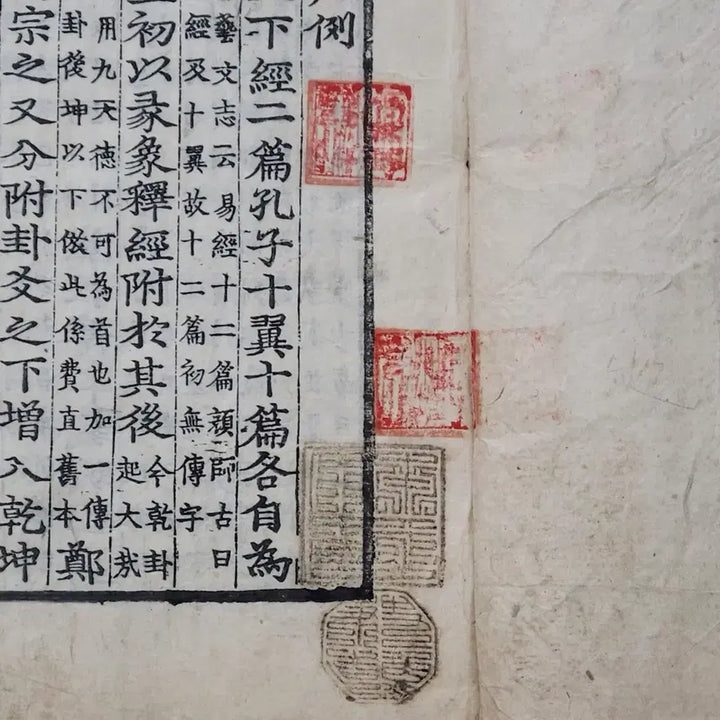 例
下經二篇孔子十翼十篇各自為
藝文志云易經十二篇顔師古曰
經及十翼故十二篇初無傳字
初以彖象釋經附於其後
今乾卦
起大哉
用九天德不可為首也加一傳
卦後坤以下倣此係費直舊本
鄭
宗之又分附卦爻之下增入乾坤